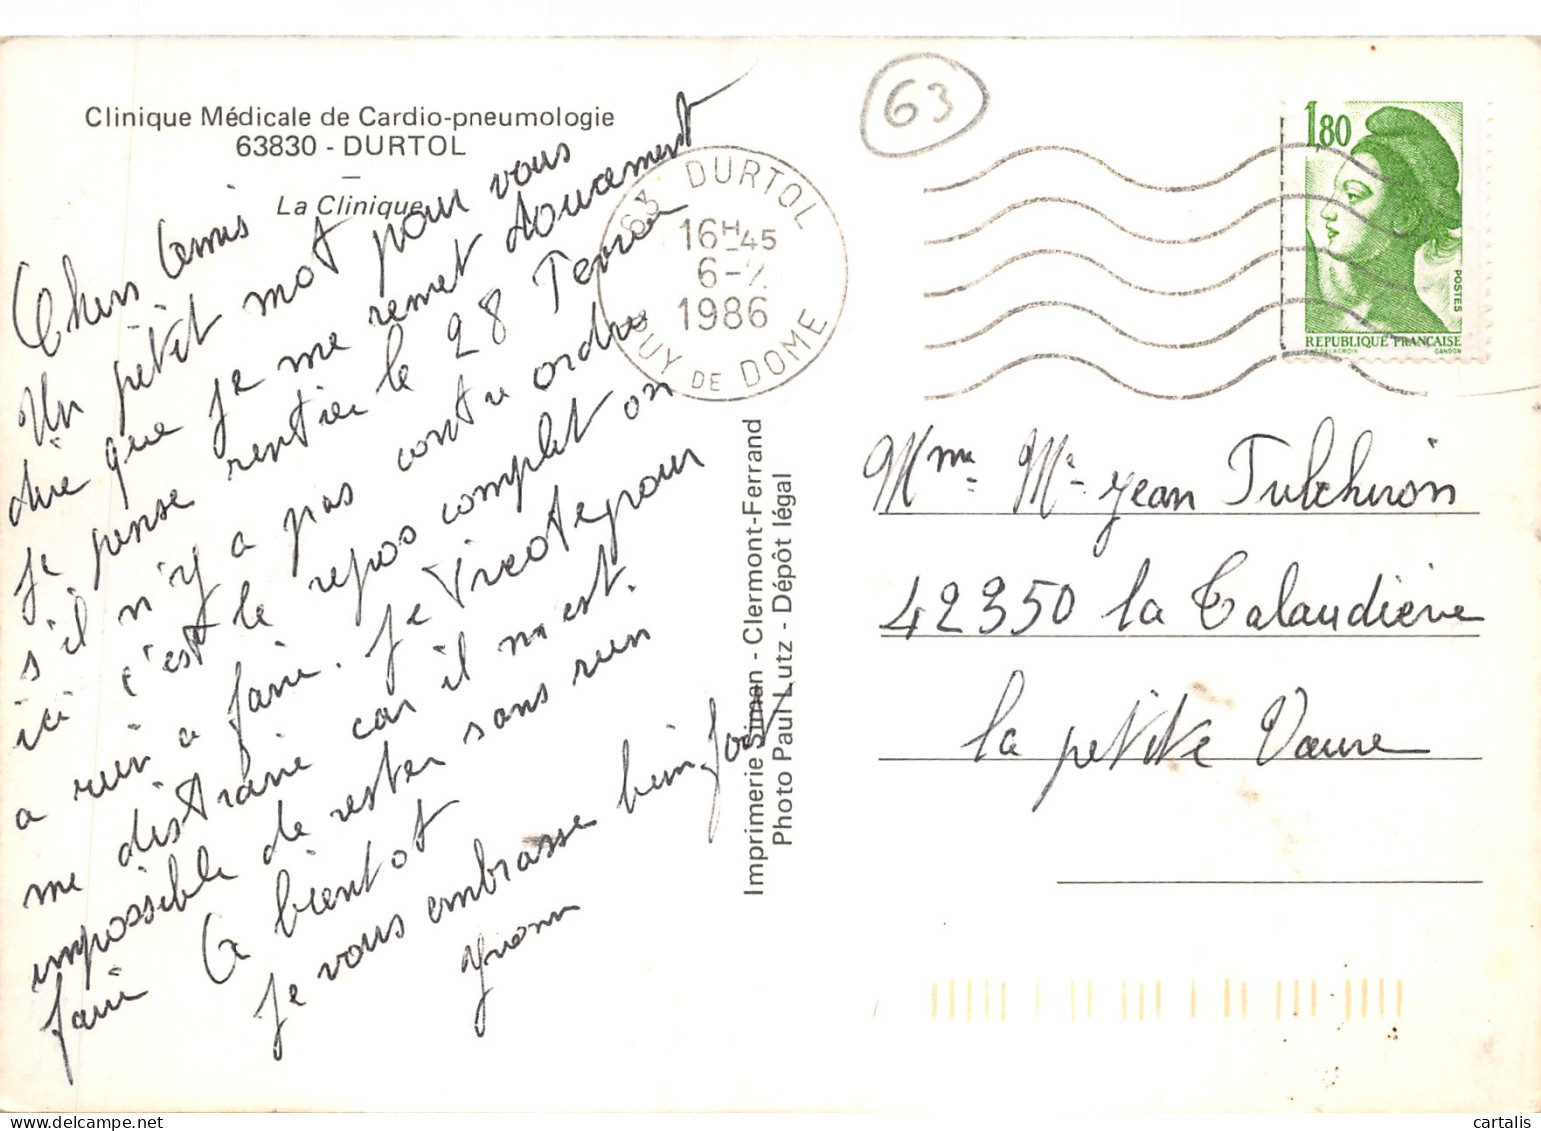 Clinique Médicale de Cardio-pneumologie
63830 - DURTOL
La Clinique
Chers Amis
Un petit mot pour vous
dire que je me remet doucement
je pense rentrer le 28 Fevrier
s'il n'y a pas contre ordre
ici c'est le repos complet on
a rien a faire. Je tricote pour
me distraire car il m est
impossible de rester sans rien
faire A bientot
Je vous embrasse bien fort
Yvonne
63 DURTOL
16H45
6-2
1986
PUY DE DOME
63
1,80
POSTES
REPUBLIQUE FRANÇAISE
DELACROIX GANDON
Imprimerie Simon - Clermont-Ferrand
Photo Paul Lutz - Dépôt légal
Mme Mr Jean Tulchiron
42350 la Talaudière
la petite Vaure
© cartalis